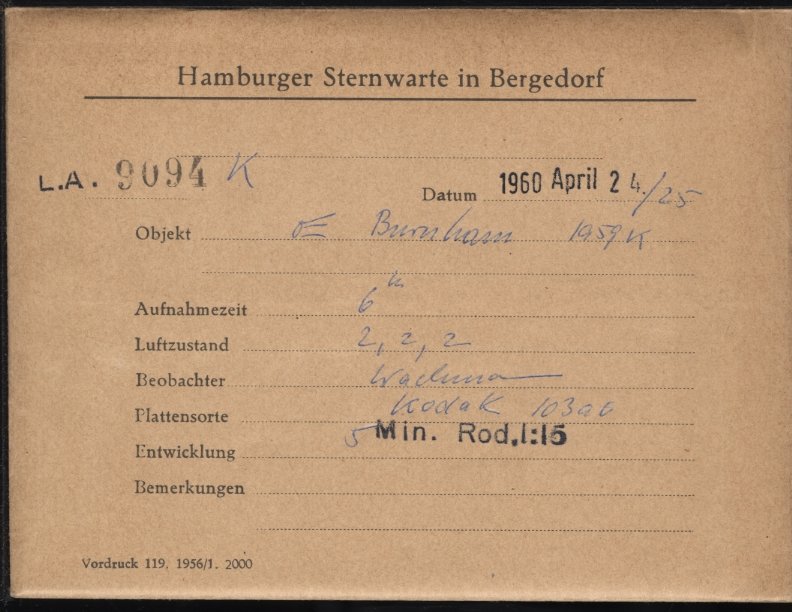 Hamburger Sternwarte in Bergedorf
L.A. 9094 K
Datum 1960 April 24./25
Objekt Burnham 1959k
Aufnahmezeit 6 m
Luftzustand 2, 2, 2
Beobachter
Plattensorte Kodak 103a6
Entwicklung 5 Min. Rod. 1:15
Bemerkungen
Vordruck 119. 1956/1. 2000